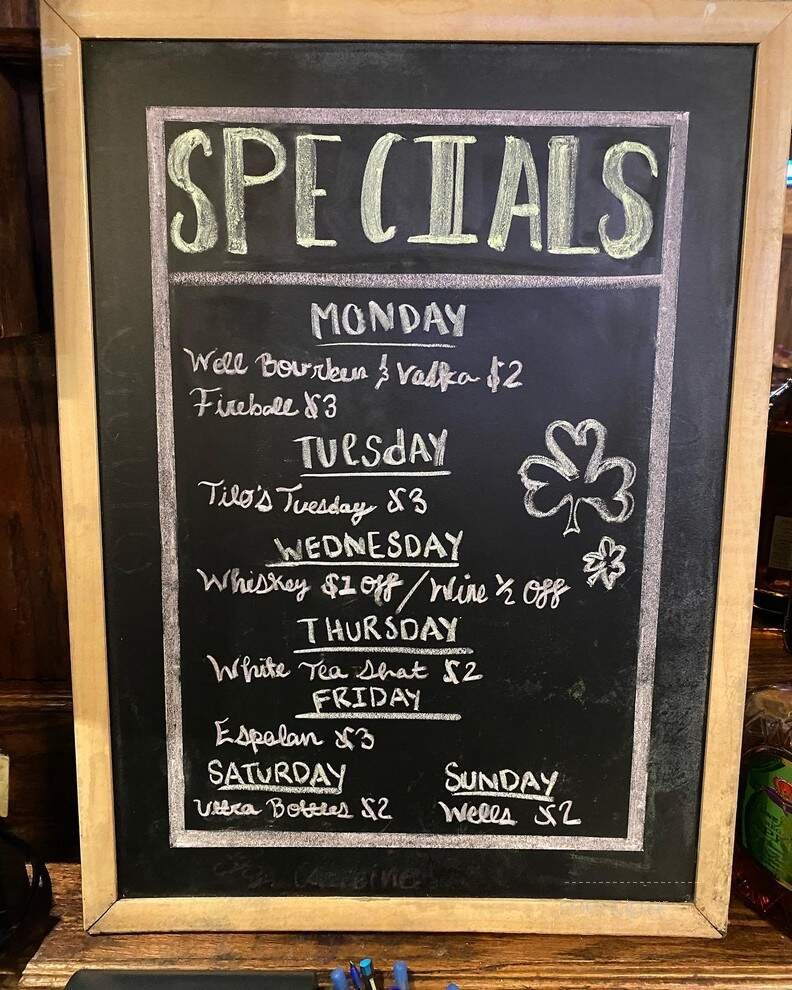 SPECIALS
MONDAY
Well Bourbon & Vodka $2
Fireball $3
TUESdAY
Tito's Tuesday $3
WEDNESDAY
Whiskey $1 Off / Wine ½ Off
THURSDAY
White Tea Shot $2
FRIDAY
Espolon $3
SATURDAY SUNDAY
Ultra Bottles $2 Wells $2